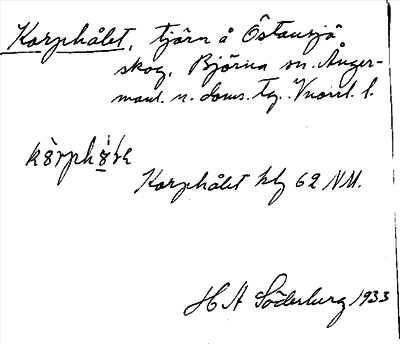 Korphålet, tjärn å Östansjö
skog, Björna sn. Ånger-
manl. n. doms. Tg. Vnorrl. l.
Korphålet kbl 62 NM.
H A Söderburg 1933